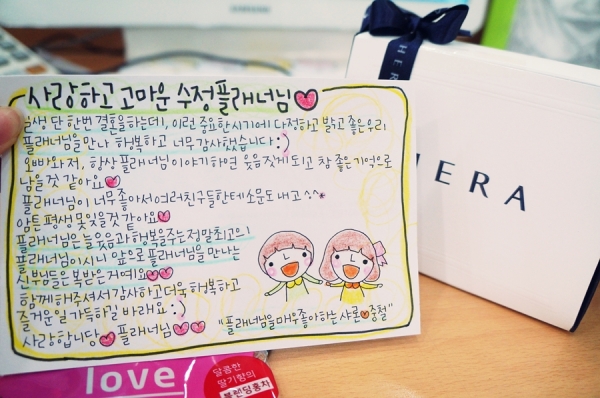 사랑하고 고마운 수정플래너님
단 한번 결혼을하는데, 이런 중요한시기에 다정하고 밝고 좋은우리
플래너님을만나 행복하고 너무감사했습니다:)
오빠와저, 항상 플래너님 이야기하면 웃음짓게되고 참 좋은기억으로
남을것 같아요
플래너님이 너무좋아서 여러친구들한테소문도 내고^^*
암튼 평생 못잊을것 같아요
플래너님은 늘 웃음과 행복을주는 정말최고의
플래너님이시니 앞으로 플래너님을만나는
신부님들은 복받은거예요
함께해주셔서 감사하고더욱 행복하고
즐거운일 가득하길 바래요:)
사랑합니당 플래너님
"플래너님을매우좋아하는 샤론♥중철"
HERA
HERA
love
달콤한
딸기향의
블렌딩홍차